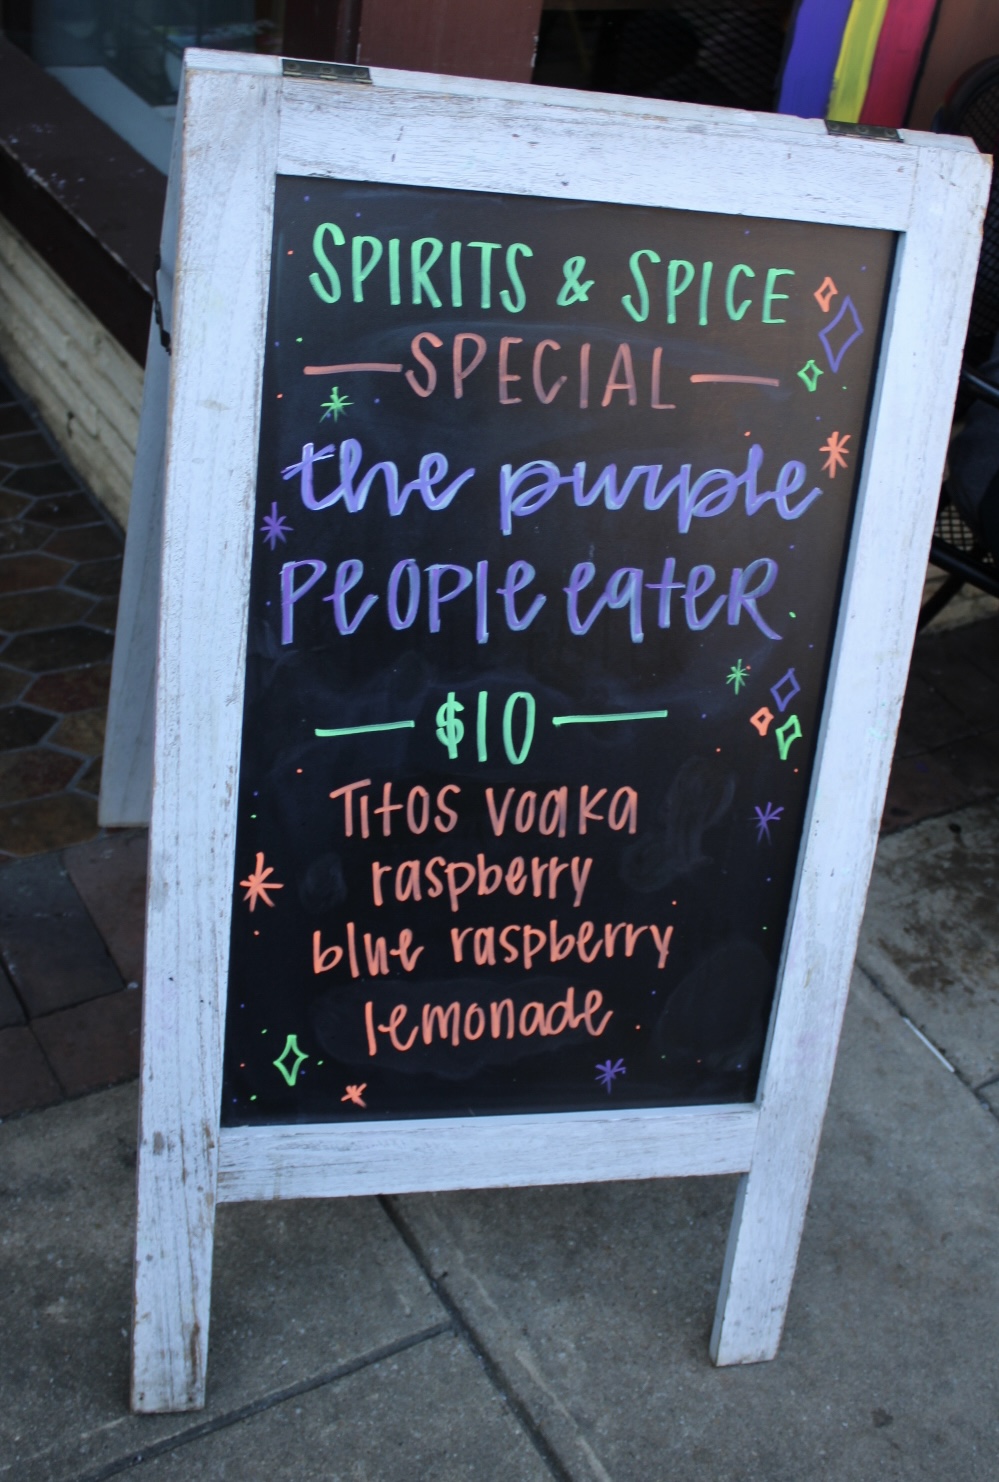 SPIRITS & SPICE
SPECIAL
the purple
PEOPLE eateR
$10
Titos vodka
raspberry
blue raspberry
lemonade